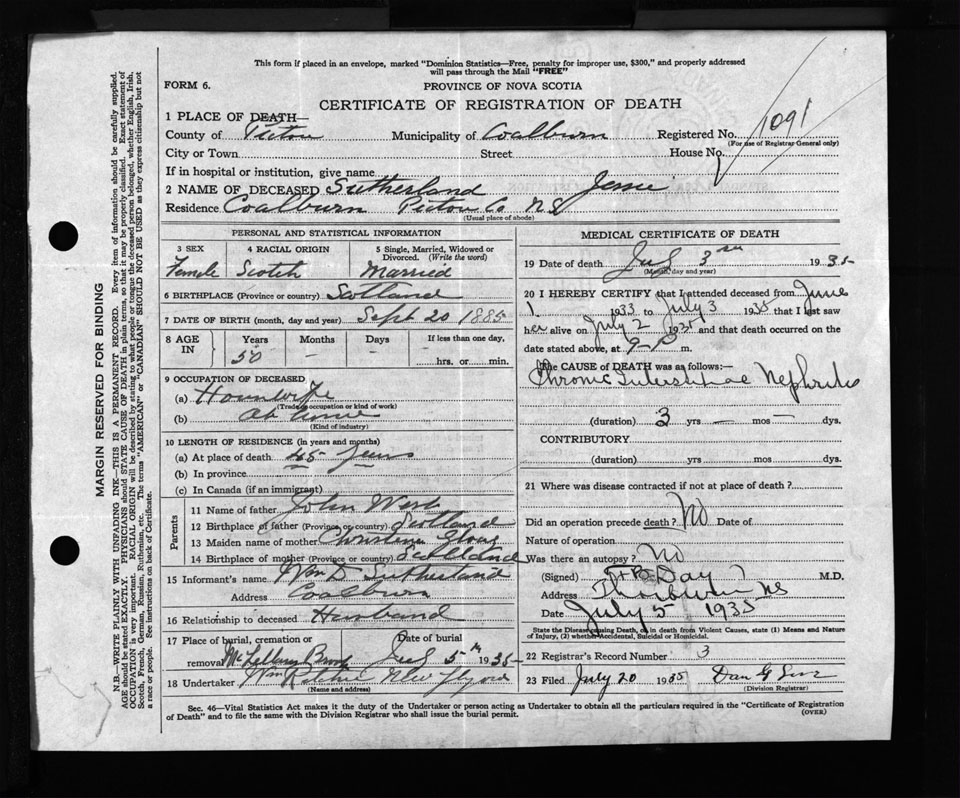 This form if placed in an envelope, marked "Dominion Statistics—Free, penalty for improper use, $300," and properly addressed
will pass through the Mail "FREE"
FORM 6.
PROVINCE OF NOVA SCOTIA
CERTIFICATE OF REGISTRATION OF DEATH
1 PLACE OF DEATH—
County of Pictou Municipality of Coalburn Registered No. 1091
(For use of Registrar General only)
City or Town Street House No.
If in hospital or institution, give name
2 NAME OF DECEASED Sutherland Jessie
Residence Coalburn Pictou Co NS
(Usual place of abode)
PERSONAL AND STATISTICAL INFORMATION
3 SEX 4 RACIAL ORIGIN 5 Single, Married, Widowed or
Divorced. (Write the word)
Female Scotch Married
6 BIRTHPLACE (Province or country) Scotland
7 DATE OF BIRTH (month, day and year) Sept 20 1885
8 AGE IN Years Months Days If less than one day,
50 — — hrs. or min.
9 OCCUPATION OF DECEASED
(a) Housewife
(Trade, occupation or kind of work)
(b) At Home
(Kind of industry)
10 LENGTH OF RESIDENCE (in years and months)
(a) At place of death 45 years
(b) In province
(c) In Canada (if an immigrant)
Parents
11 Name of father John West
12 Birthplace of father (Province or country) Scotland
13 Maiden name of mother Christena
14 Birthplace of mother (Province or country) Scotland
15 Informant's name Wm D Sutherland
Address Coalburn
16 Relationship to deceased Husband
17 Place of burial, cremation or Date of burial
removal McLellans Brook July 5th 1935
18 Undertaker Wm
(Name and address)
MEDICAL CERTIFICATE OF DEATH
19 Date of death July 3rd 1935
(Month, day and year)
20 I HEREBY CERTIFY that I attended deceased from June
1 1933 to July 3 1935 that I last saw
her alive on July 2 1935 and that death occurred on the
date stated above, at 9 P m.
The CAUSE OF DEATH was as follows:—
Chronic Interstitial Nephritis
(duration) 3 yrs — mos — dys.
CONTRIBUTORY
(duration) yrs mos dys.
21 Where was disease contracted if not at place of death?
Did an operation precede death? No Date of
Nature of operation
Was there an autopsy? No
(Signed) Day M.D.
Address Thorburn NS
Date July 5 1935
State the Disease causing Death, or in death from Violent Causes, state (1) Means and Nature
of Injury, (2) whether Accidental, Suicidal or Homicidal.
22 Registrar's Record Number 3
23 Filed July 20 1935 Dan G
(Division Registrar)
Sec. 46—Vital Statistics Act makes it the duty of the Undertaker or person acting as Undertaker to obtain all the particulars required in the "Certificate of Registration
of Death" and to file the same with the Division Registrar who shall issue the burial permit.
(OVER)
MARGIN RESERVED FOR BINDING
N.B.—WRITE PLAINLY WITH UNFADING INK—THIS IS A PERMANENT RECORD. Every item of information should be carefully supplied.
AGE should be stated EXACTLY. PHYSICIANS should STATE CAUSE OF DEATH in plain terms, so that it may be properly classified. Exact statement of
OCCUPATION is very important. RACIAL ORIGIN will be described by stating to what people or tongue the deceased person belonged, whether English, Irish,
Scotch, French, German, Russian, Ruthenian, etc. The terms "AMERICAN" or "CANADIAN" SHOULD NOT BE USED as they express citizenship but not
a race or people. See instructions on back of Certificate.